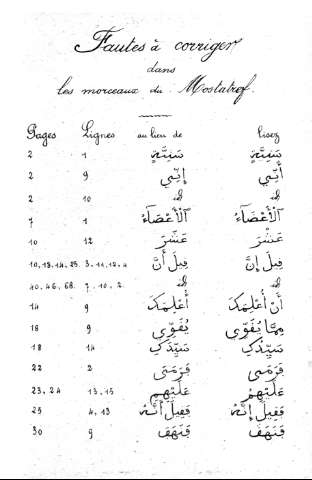 Fautes à corriger
dans
les morceaux du Mostatref.
Pages Lignes au lieu de lisez
2 1 سَنِيَّةٍ سَنِيَّةٍ
2 9 إِنِّي أَنِّي
2 10 id id
7 1 ٱلْأَعْضَآءُ ٱلْأَعْضَآءَ
10 12 عَشَّرَ عَشْرَ
10,13.14.25. 3.11.12.4 قِيلَ أَنَّ قِيلَ إِنَّ
40.46.68. 7.10.2. id id
14 9 أُعْلِمَكَ أَنْ أُعْلِمَكَ
16 9 يُقَوِّي مِمَّا يُقَوِّي
18 14
22 2
23,24 13.15 عَلَيْهِمْ عَلَيْهِمْ
25 4,13 فَقِيلَ أَنَّهُ فَقِيلَ إِنَّهُ
30 9